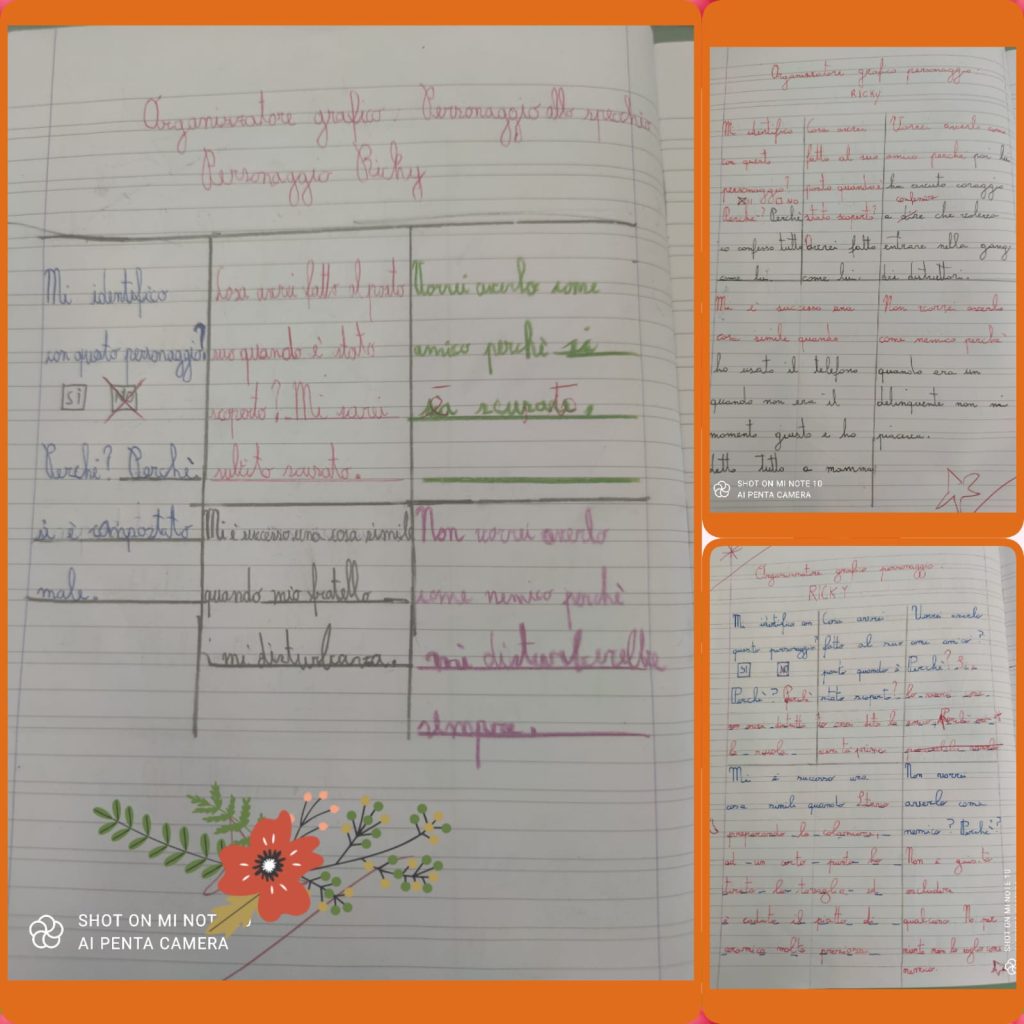 Organizzatore grafico: Personaggio allo specchio
Personaggio Ricky
Mi identifico
con questo personaggio?
SI NO
Perché? Perchè
si è comportato
male.
Cosa avrei fatto al posto
suo quando è stato
scoperto? Mi sarei
subito scusato.
Vorrei averlo come
amico perchè si
è scusato.
Mi è successo una cosa simile
quando mio fratello
mi disturbava.
Non vorrei averlo
come nemico perchè
mi disturberebbe
sempre.
SHOT ON MI NOT
AI PENTA CAMERA
Organizzatore grafico personaggio.
RICKY
Mi identifico
con questo
personaggio?
SI NO
Perché? Perchè
io confesso tutto
come lui.
Cosa avrei
fatto al suo
posto quando è
stato scoperto?
Avrei fatto
come lui.
Vorrei averlo come
amico perchè poi lui
ha avuto coraggio
a confessare che voleva
entrare nella gang
dei distruttori.
Mi è successo una
cosa simile quando
ho usato il telefono
quando non era il
momento giusto e ho
detto tutto a mamma
Non vorrei averlo
come nemico perchè
quando era un
delinquente non mi
piaceva.
SHOT ON MI NOTE 10
AI PENTA CAMERA
Organizzatore grafico personaggio:
RICKY
Mi identifico con
questo personaggio?
SI NO
Perché? Perchè
non avrei distrutto
la scuola
Cosa avrei
fatto al suo
posto quando è
stato scoperto?
Io avrei detto la
verità prima
Vorrei averlo
come amico?
Perché?
Mi è successo una
cosa simile quando stavo
preparando la colazione,
ad un certo punto ho
tirato la tovaglia ed
è caduto il piatto di
ceramica molto prezioso.
Non vorrei
averlo come
nemico? Perchè?
Non è giusto
escludere
qualcuno. Io per
niente non lo voglio come
nemico.
SHOT ON MI NOTE 10